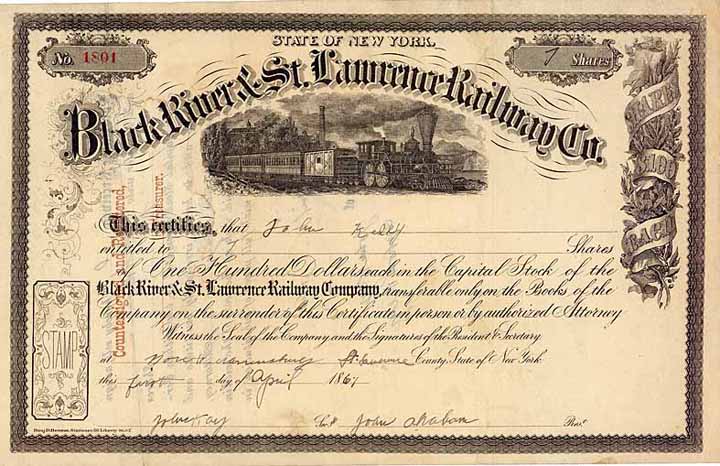 STATE OF NEW YORK.
No. 1801
7 Shares
Black River & St. Lawrence Railway Co.
SHARES $100 EACH
This certifies, that John Kelly
entitled to 7 Shares
of One Hundred Dollars each in the Capital Stock of the
Black River & St. Lawrence Railway Company, transferable only on the Books of the
Company on the surrender of this Certificate in person or by authorized Attorney
Witness the Seal of the Company and the Signatures of the President & Secretary
at St Lawrence County, State of New York.
this first day of April 1867
Secy. John Graham Prest.
STAMP
Countersigned and Registered,
Treasurer.